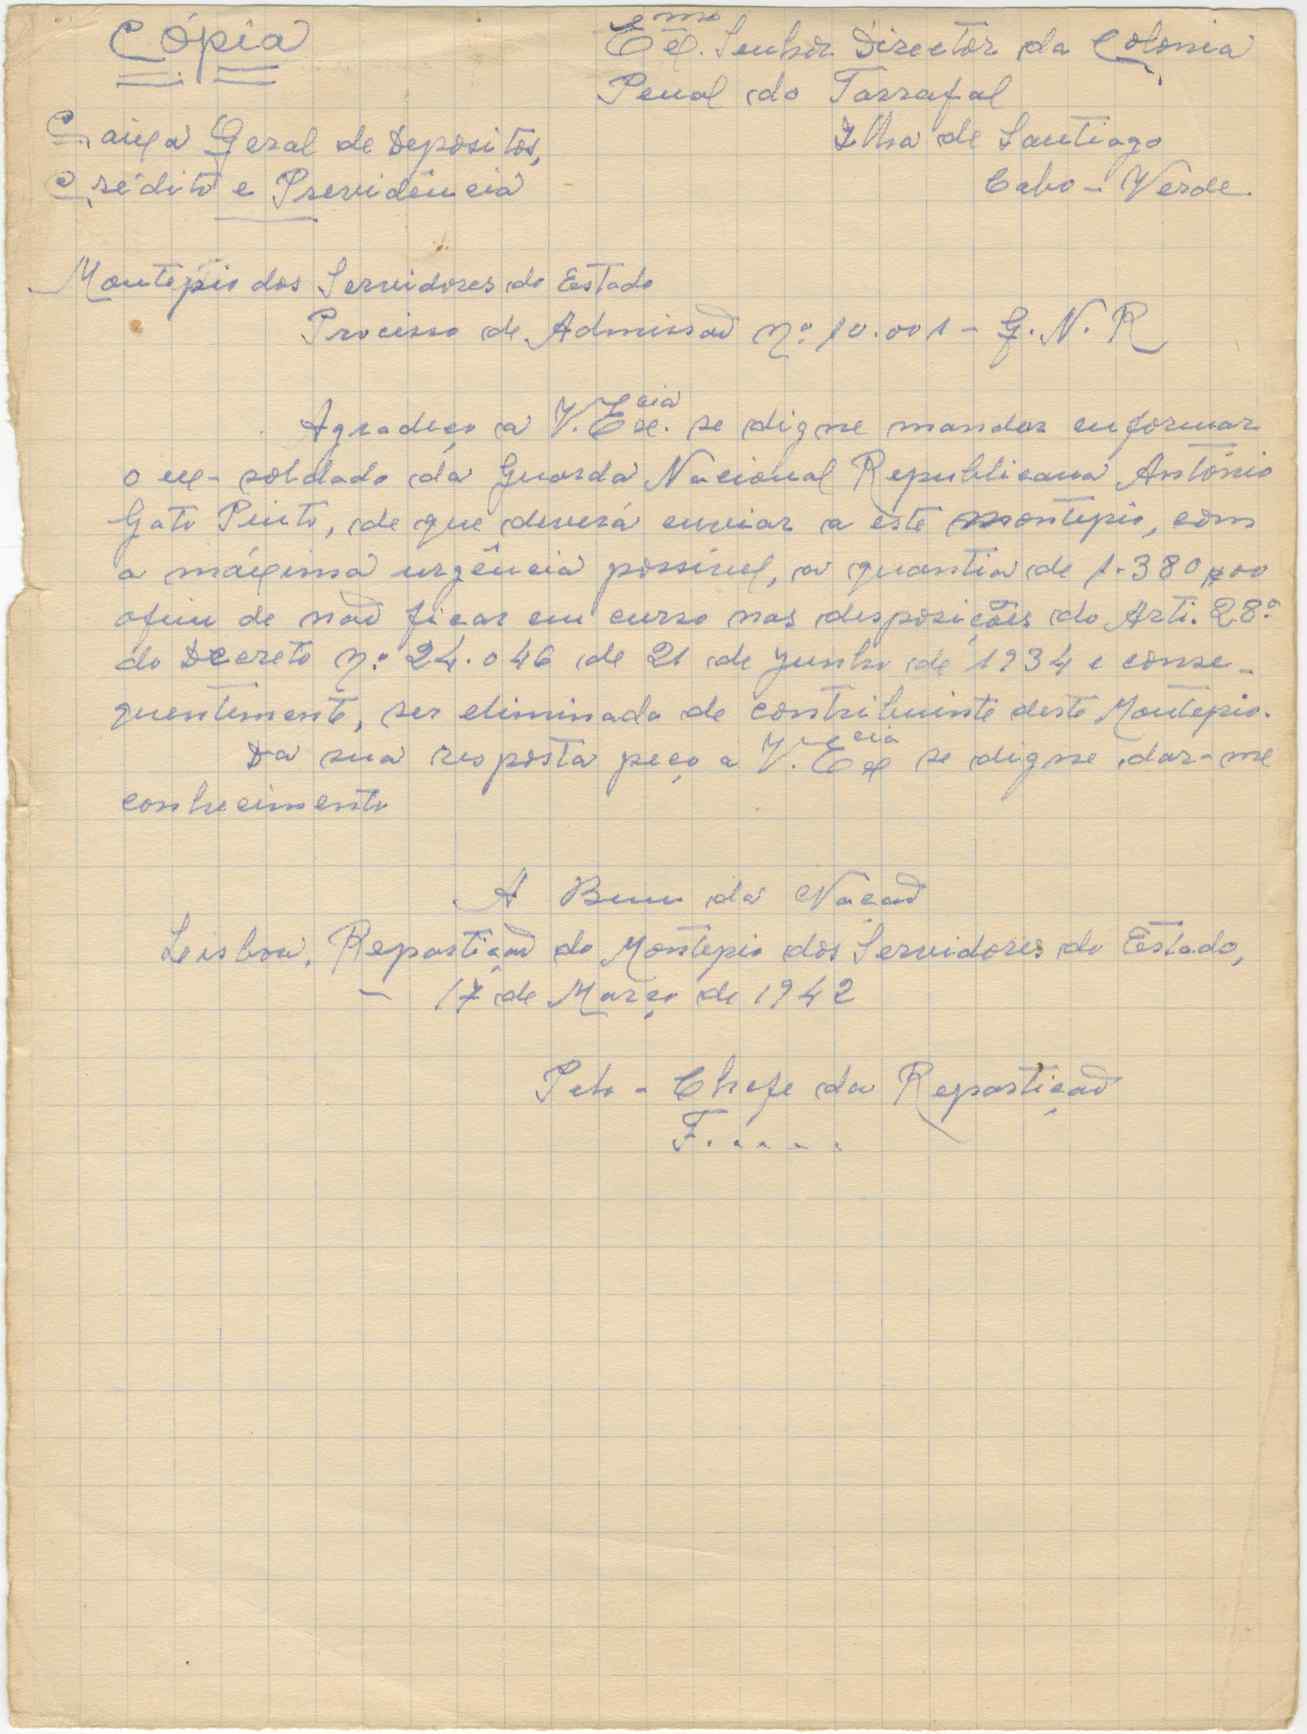 Cópia
Exmo. Senhor Director da Colonia
Penal do Tarrafal
Ilha de Santiago
Cabo-Verde.
Caixa Geral de Depositos,
Crédito e Previdência
Montepio dos Servidores do Estado
Processo de Admissão nº 10.001 - G. N. R
Agradeço a V. Excia. se digne mandar enformar
o ex-soldado da Guarda Nacional Republicana António
Gato Pinto, de que deverá enviar a este Montepio, com
a máxima urgência possivel, a quantia de 1.380$00
afim de não ficar em curso nas desposições do Arti. 28º
do Decreto nº 24.046 de 21 de Junho de 1934 e conse-
quentemente, ser eliminado de contribuinte deste Montepio.
Da sua resposta peço a V. Excia se digne dar-me
conhecimento
A Bem da Nação
Leisboa, Repartição do Montepio dos Servidores do Estado,
- 17 de Março de 1942
Pelo - Chefe da Repartição
F.....